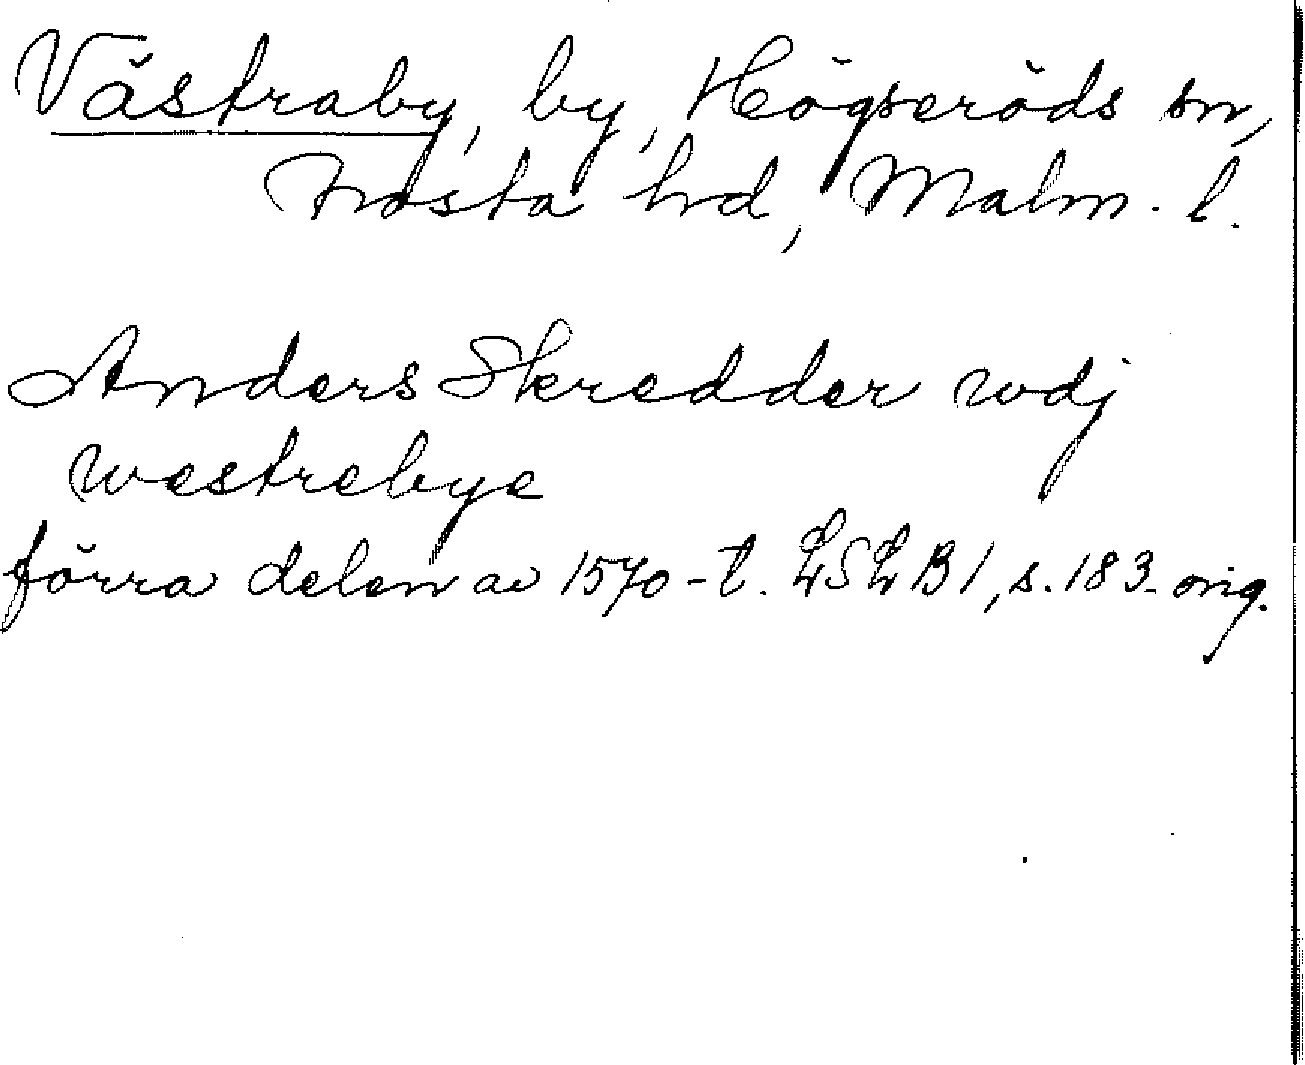 Västraby, by, Högseröds sn,
Frosta hd, Malm. l.
Anders Skredder wdj
westrebye
förra delen av 1570-t. LSLB1, s. 183. orig.